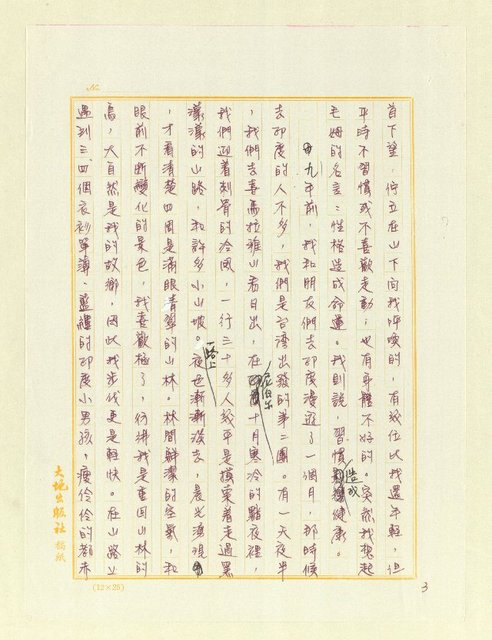 首下望,佇立在山下向我呼喚的,有幾位比我還年輕,但
平時不習慣或不喜歡走動;也有身體不好的。突然我想起
毛姆的名言:性格造成命運。我則說,習慣造成健康。
九年前,我和朋友們去印度漫遊了一個月,那時候
去印度的人不多,我們是台灣出發的第二團。有一天夜半
,我們去喜馬拉雅山看日出,在尼泊尔十月寒冷的黯夜裡,
我們迎着刺骨的冷風,一行三十多人幾乎是摸索着走過黑
漾漾的山路,和許多小山坡。一路上夜色漸漸淡去,晨光湧現
,才看清楚四周是滿眼青翠的山林。林間鮮潔的空氣,和
眼前不斷變化的景色,我喜歡極了,彷彿我是重回山林的
鳥,大自然是我的故鄉,因此我步伐更是輕快。在山路上
遇到三、四個衣衫單薄、藍縷的印度小男孩,瘦伶伶的都赤
大地出版社稿紙
(12×25)
3